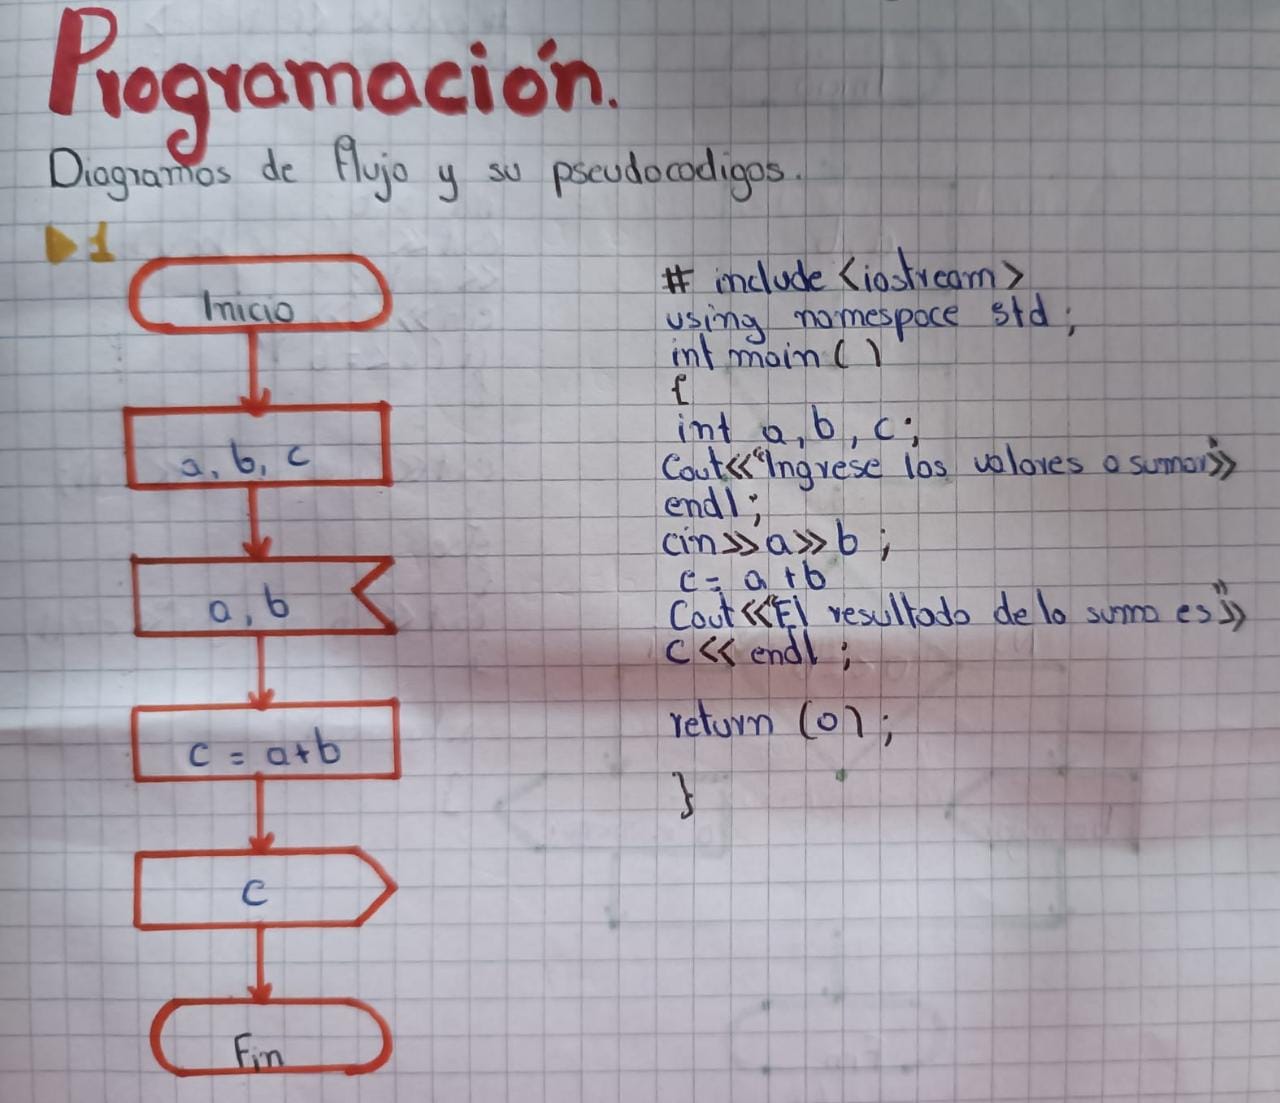 Programación.
Diagramas de flujo y su pseudocodigos.
1
Inicio
a, b, c
a, b
c = a+b
c
Fin
# include <iostream>
using namespace std;
int main ( )
{
int a, b, c;
Cout<<"Ingrese los valores a sumar">>
endl;
cin>>a>>b ;
c= a +b
Cout<<"El resultado de la suma es">>
c << endl ;
return (0) ;
}